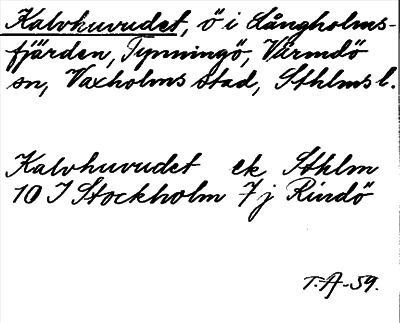 Kalvhuvudet, ö i Långholms-
fjärden, Tynningö, Värmdö
sn, Vaxholms stad, Sthlms l.
Kalvhuvudet ek Sthlm
10 I Stockholm 7j Rindö
T.A-59.